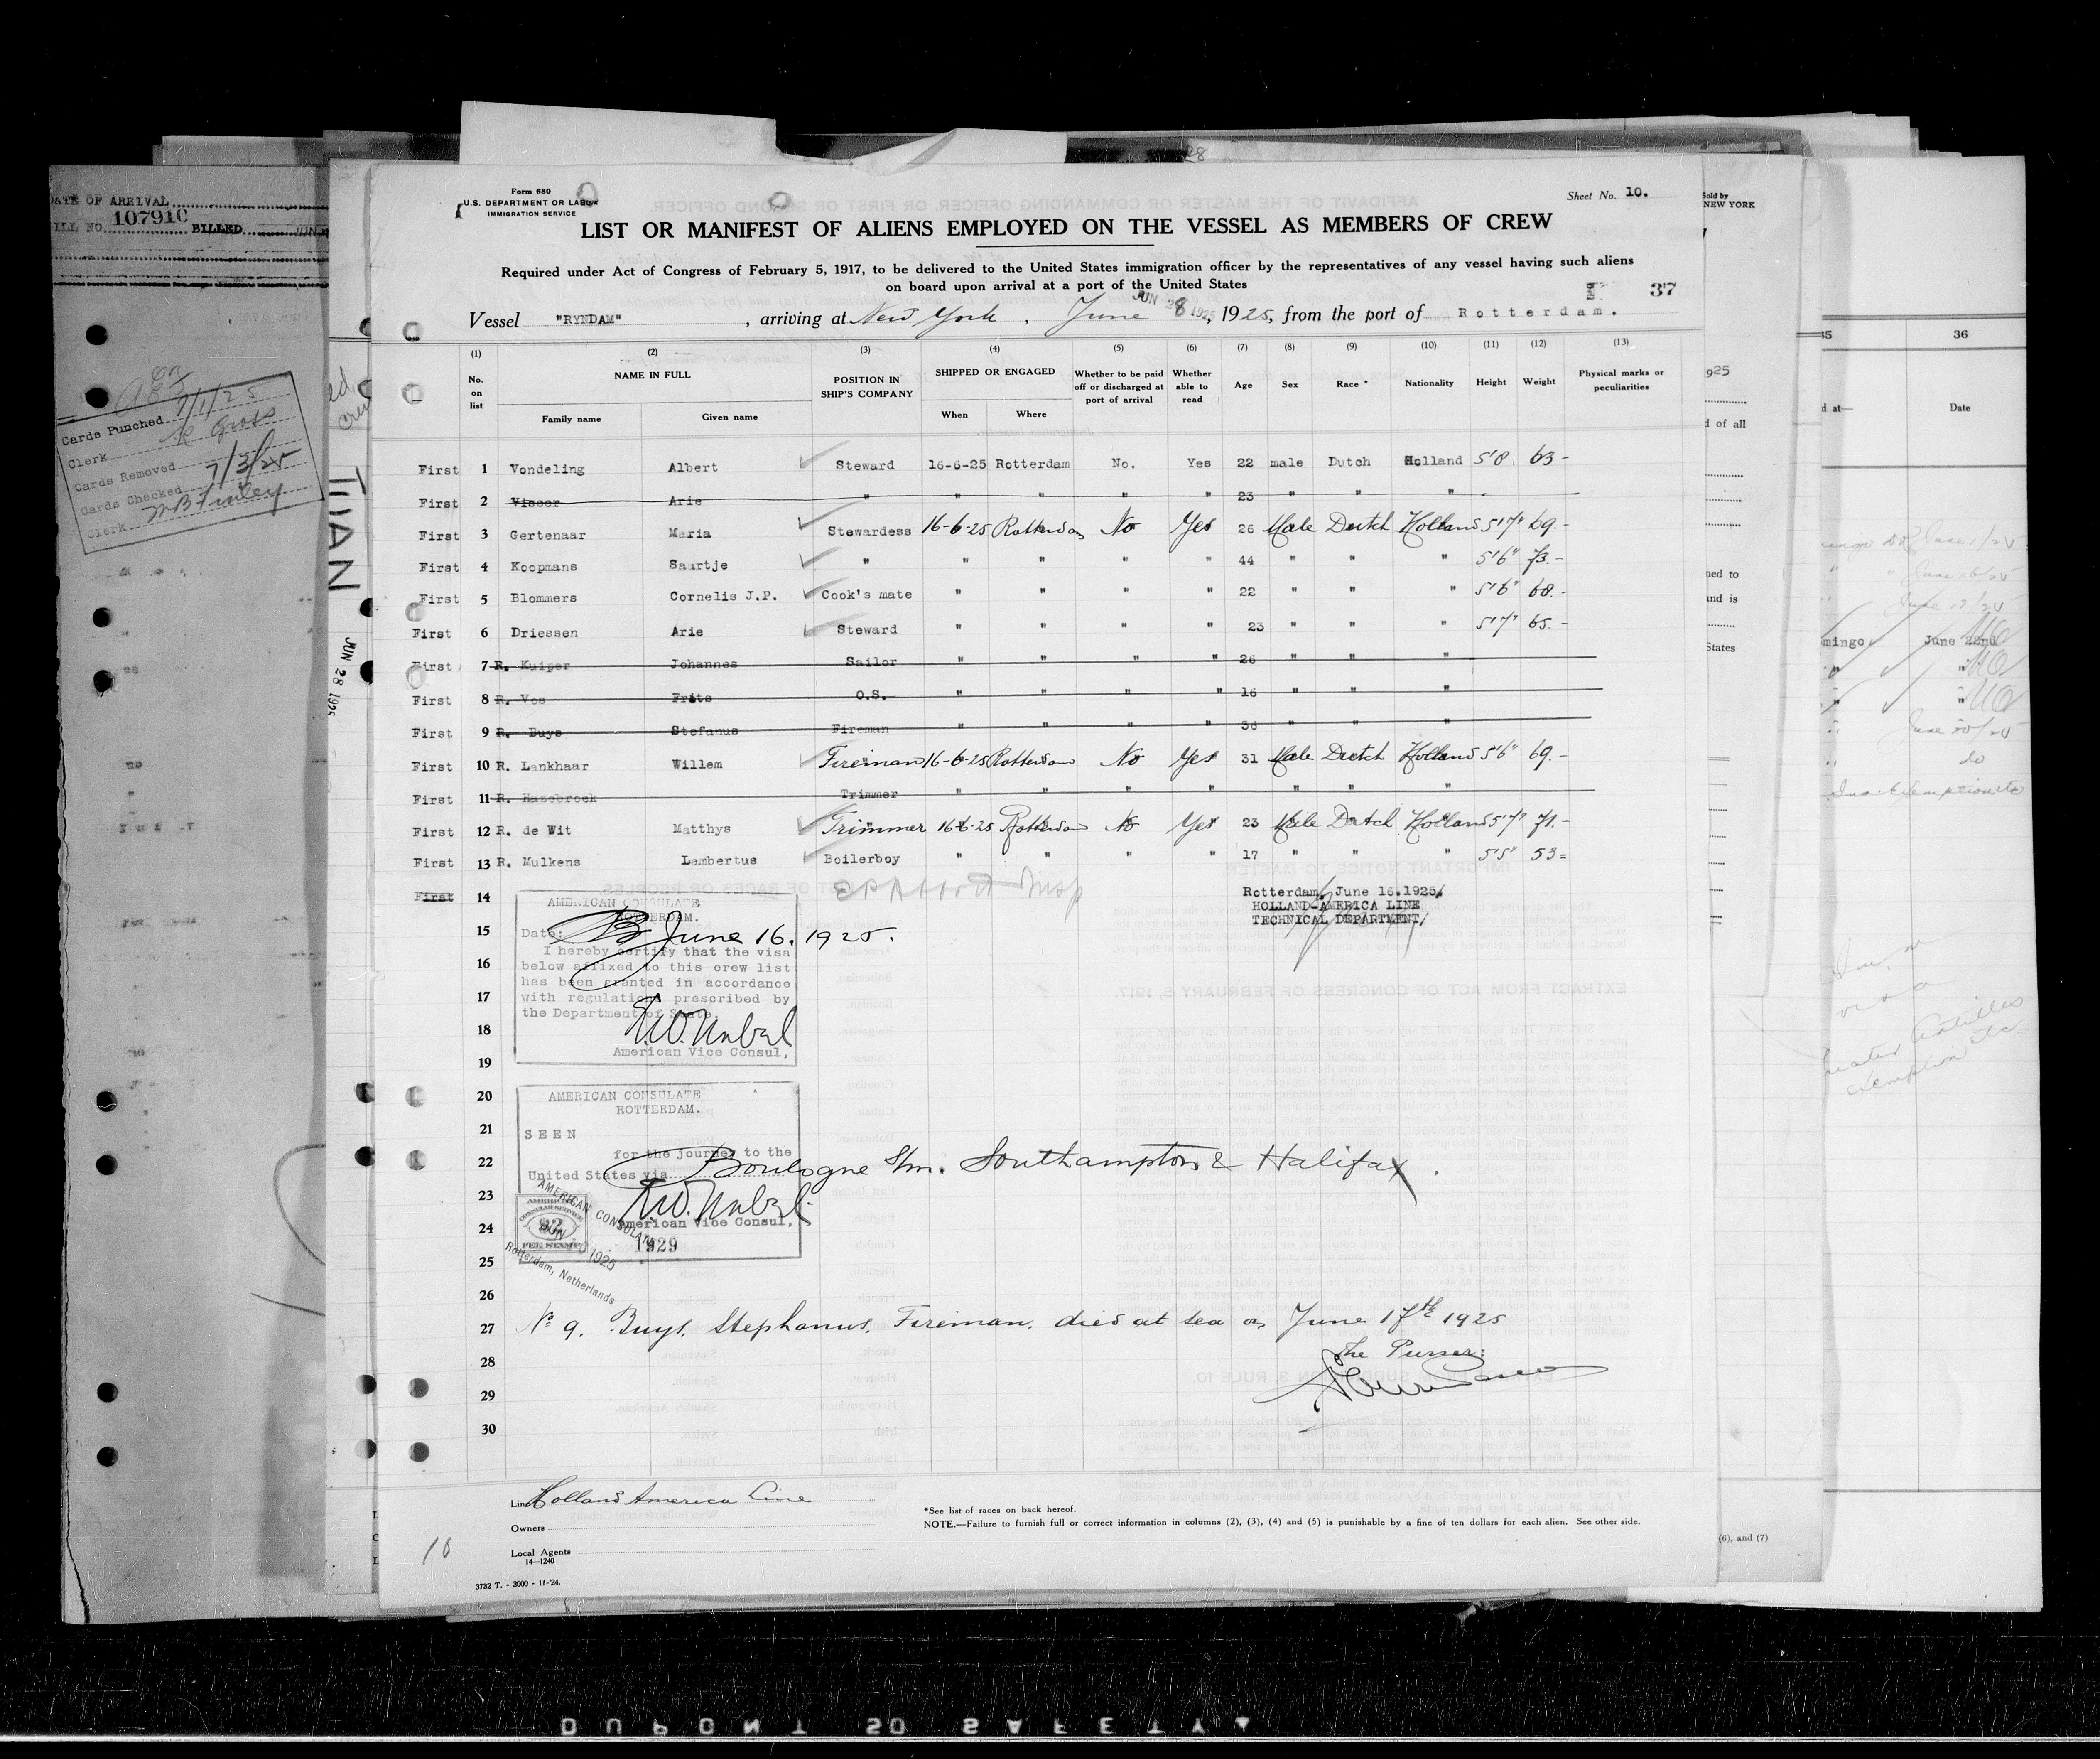 Form 680
U.S. DEPARTMENT OR LABOR
IMMIGRATION SERVICE
Sheet No. 10.
LIST OR MANIFEST OF ALIENS EMPLOYED ON THE VESSEL AS MEMBERS OF CREW
Required under Act of Congress of February 5, 1917, to be delivered to the United States immigration officer by the representatives of any vessel having such aliens
on board upon arrival at a port of the United States
37
Vessel "RYNDAM", arriving at New York, June 28, 1925, from the port of Rotterdam.
JUN 28 1925
(1) (2) (3) (4) (5) (6) (7) (8) (9) (10) (11) (12) (13)
No. on list NAME IN FULL POSITION IN SHIP'S COMPANY SHIPPED OR ENGAGED Whether to be paid off or discharged at port of arrival Whether able to read Age Sex Race * Nationality Height Weight Physical marks or peculiarities
Family name Given name When Where
First 1 Vondeling Albert Steward 16-6-25 Rotterdam No. Yes 22 male Dutch Holland 5'8 63-
First 2 Visser Arie " " " " " 23 " " "
First 3 Gertenaar Maria Stewardess 16-6-25 Rotterdam No Yes 26 Male Dutch Holland 5'7" 69.-
First 4 Koopmans Saartje " " " " " 44 " " " 5'6" 73.-
First 5 Blommers Cornelis J.P. Cook's mate " " " " 22 " " " 5'6" 68.-
First 6 Driessen Arie Steward " " " " 23 " " " 5'7" 65.-
First 7 R. Kuiper Johannes Sailor " " " " 26 " " "
First 8 R. Vos Frits O.S. " " " " 16 " " "
First 9 R. Buys Stefanus Fireman " " " " 36 " " "
First 10 R. Lankhaar Willem Fireman 16-6-25 Rotterdam No Yes 31 Male Dutch Holland 5'6" 69.-
First 11 R. Hazebroek Trimmer " " " " " " "
First 12 R. de Wit Matthys Trimmer 16-6-25 Rotterdam No Yes 23 Male Dutch Holland 5'7" 71.-
First 13 R. Mulkens Lambertus Boilerboy " " " " 17 " " " 5'5" 53=
First 14
Rotterdam, June 16.1925.
HOLLAND-AMERICA LINE
TECHNICAL DEPARTMENT,
AMERICAN CONSULATE
ROTTERDAM.
15
Date: June 16. 1925.
I hereby certify that the visa
16
below affixed to this crew list
has been granted in accordance
17
with regulations prescribed by
the Department of State.
18
19
American Vice Consul,
20
AMERICAN CONSULATE
ROTTERDAM.
21
SEEN
22
for the journey to the
United States via Boulogne s/m. Southampton & Halifax.
23
24
American Vice Consul,
1929
AMERICAN CONSULAR SERVICE
$2
FEE STAMP
AMERICAN CONSULATE
JUN 1925
Rotterdam, Netherlands
25
26
27 No 9. Buys, Stephanus, Fireman, died at sea on June 17th 1925
The Purser:
28
29
30
Line Holland America Line
Owners
Local Agents
14—1240
3732 T. - 3000 - 11-'24.
*See list of races on back hereof.
NOTE.—Failure to furnish full or correct information in columns (2), (3), (4) and (5) is punishable by a fine of ten dollars for each alien. See other side.
10
DATE OF ARRIVAL
BILL NO. 107910 BILLED
Cards Punched 7/1/25
Clerk Gross
Cards Removed
Cards Checked 7/3/25
Clerk
TIAN
JUN 28 1925
Sold by
NEW YORK
925
d of all
ned to
and is
States
(6), and (7)
36
d at—
Date
mingo
June 22nd
DUPONT SO SAFETY